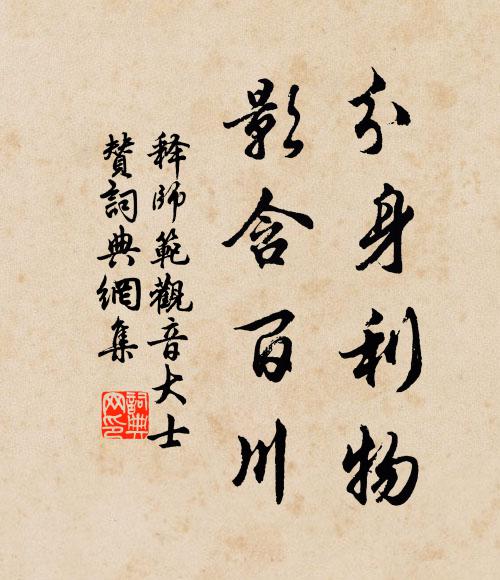 分身利物
影含百川
释師範觀音大士
賛詞典網集
詞典
网印